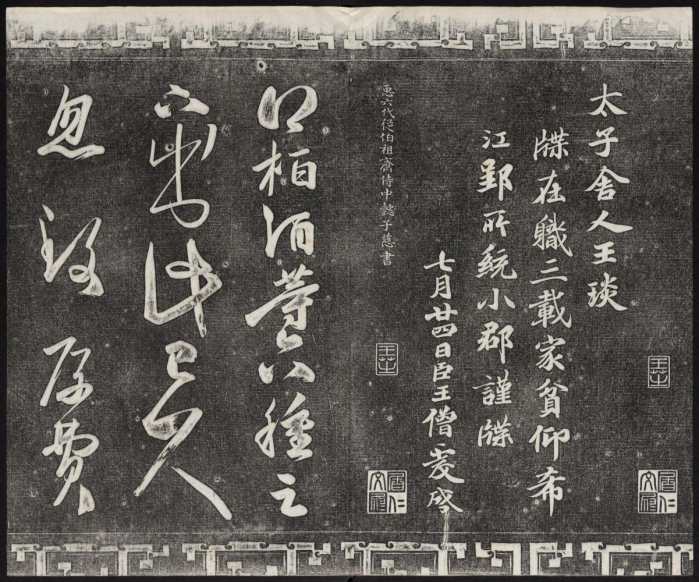 太子舍人王琰
牒在職三載家貧仰希
江郢所統小郡謹牒
七月廿四日臣王僧虔啓
六代從伯祖齊侍中懿子慈書
得柏酒等六種足
下出此已久
忽致厚費